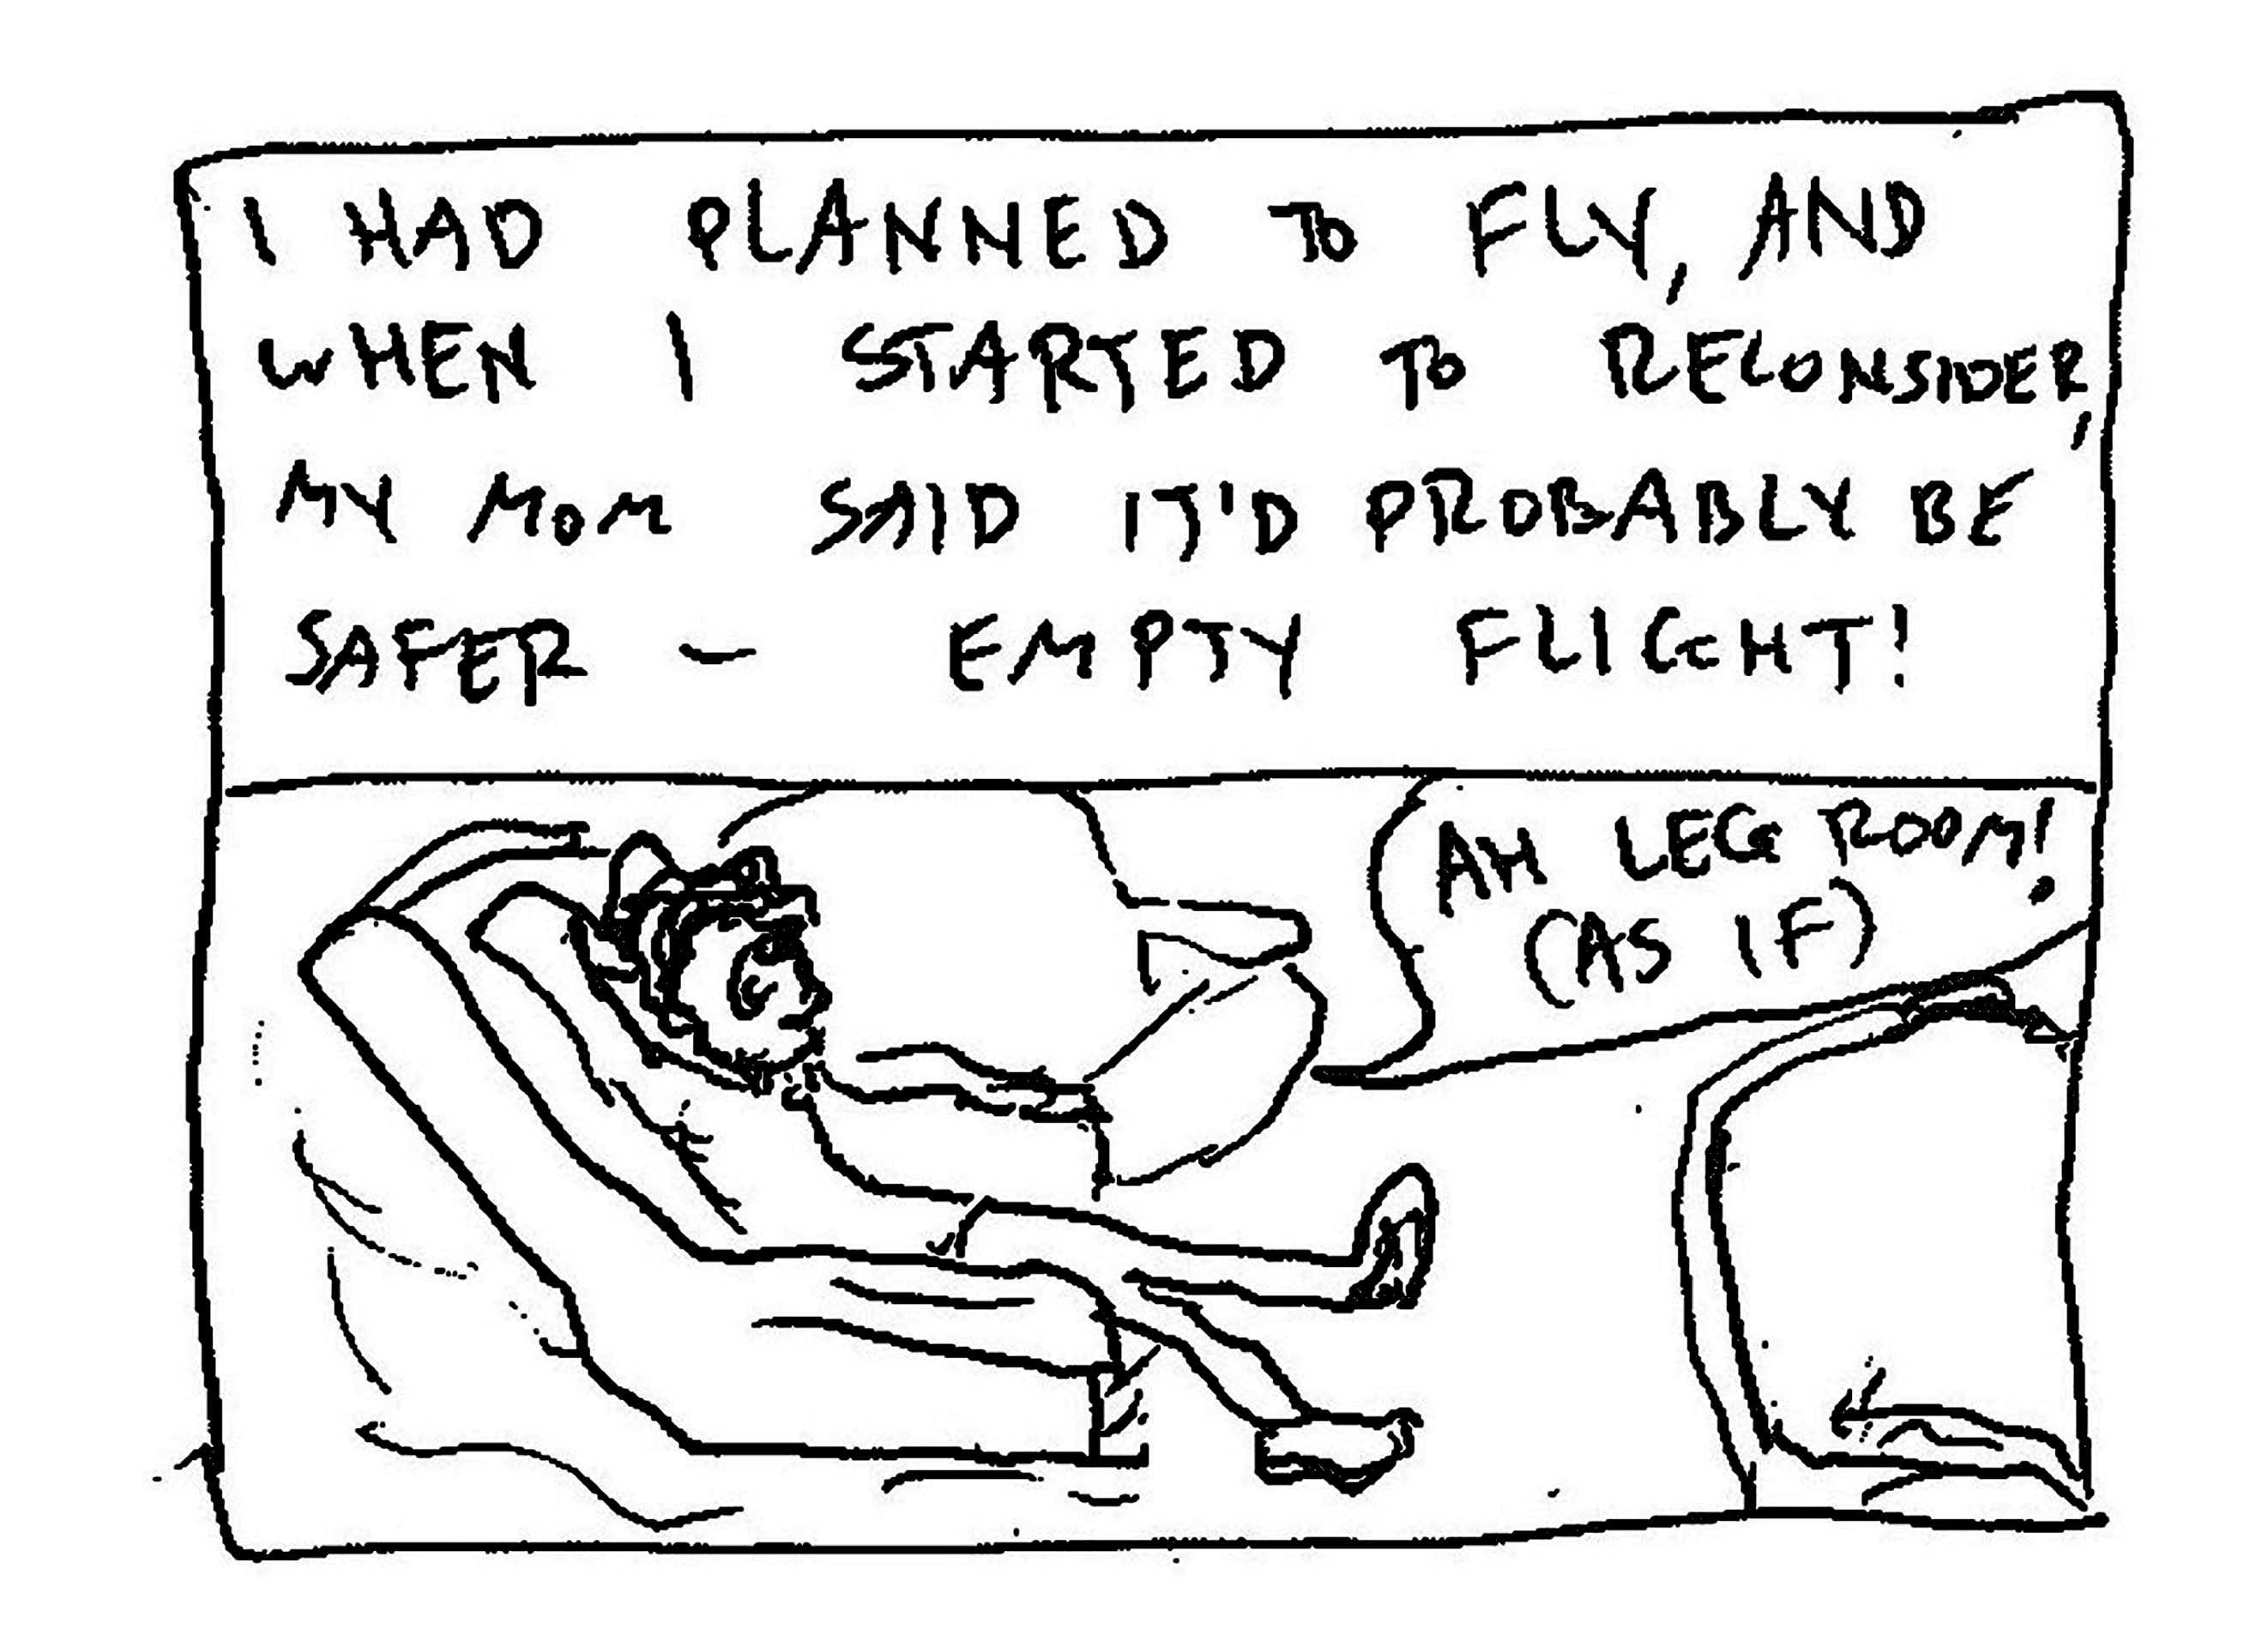 I HAD PLANNED TO FLY, AND
WHEN I STARTED TO RECONSIDER,
MY MOM SAID IT'D PROBABLY BE
SAFER - EMPTY FLIGHT!
AH LEG ROOM!
(AS IF)